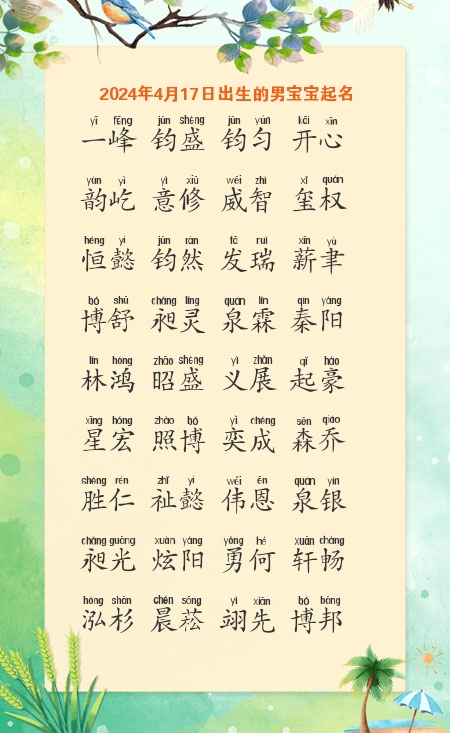 2024年4月17日出生的男宝宝起名
yī fēng jūn shèng jūn yún kāi xīn
一峰 钧盛 钧匀 开心
yùn yì yì xiū wēi zhì xǐ quán
韵屹 意修 威智 玺权
héng yì jūn rán fā ruì xīn yù
恒懿 钧然 发瑞 薪聿
bó shū chǎng líng quán lín qín yáng
博舒 昶灵 泉霖 秦阳
lín hóng zhāo shèng yì zhǎn qǐ háo
林鸿 昭盛 义展 起豪
xīng hóng zhào bó yì chéng sēn qiáo
星宏 照博 奕成 森乔
shèng rén zhǐ yì wěi ēn quán yín
胜仁 祉懿 伟恩 泉银
chǎng guāng xuàn yáng yǒng hé xuān chàng
昶光 炫阳 勇何 轩畅
hóng shān chén sōng yì xiān bó bāng
泓杉 晨菘 翊先 博邦